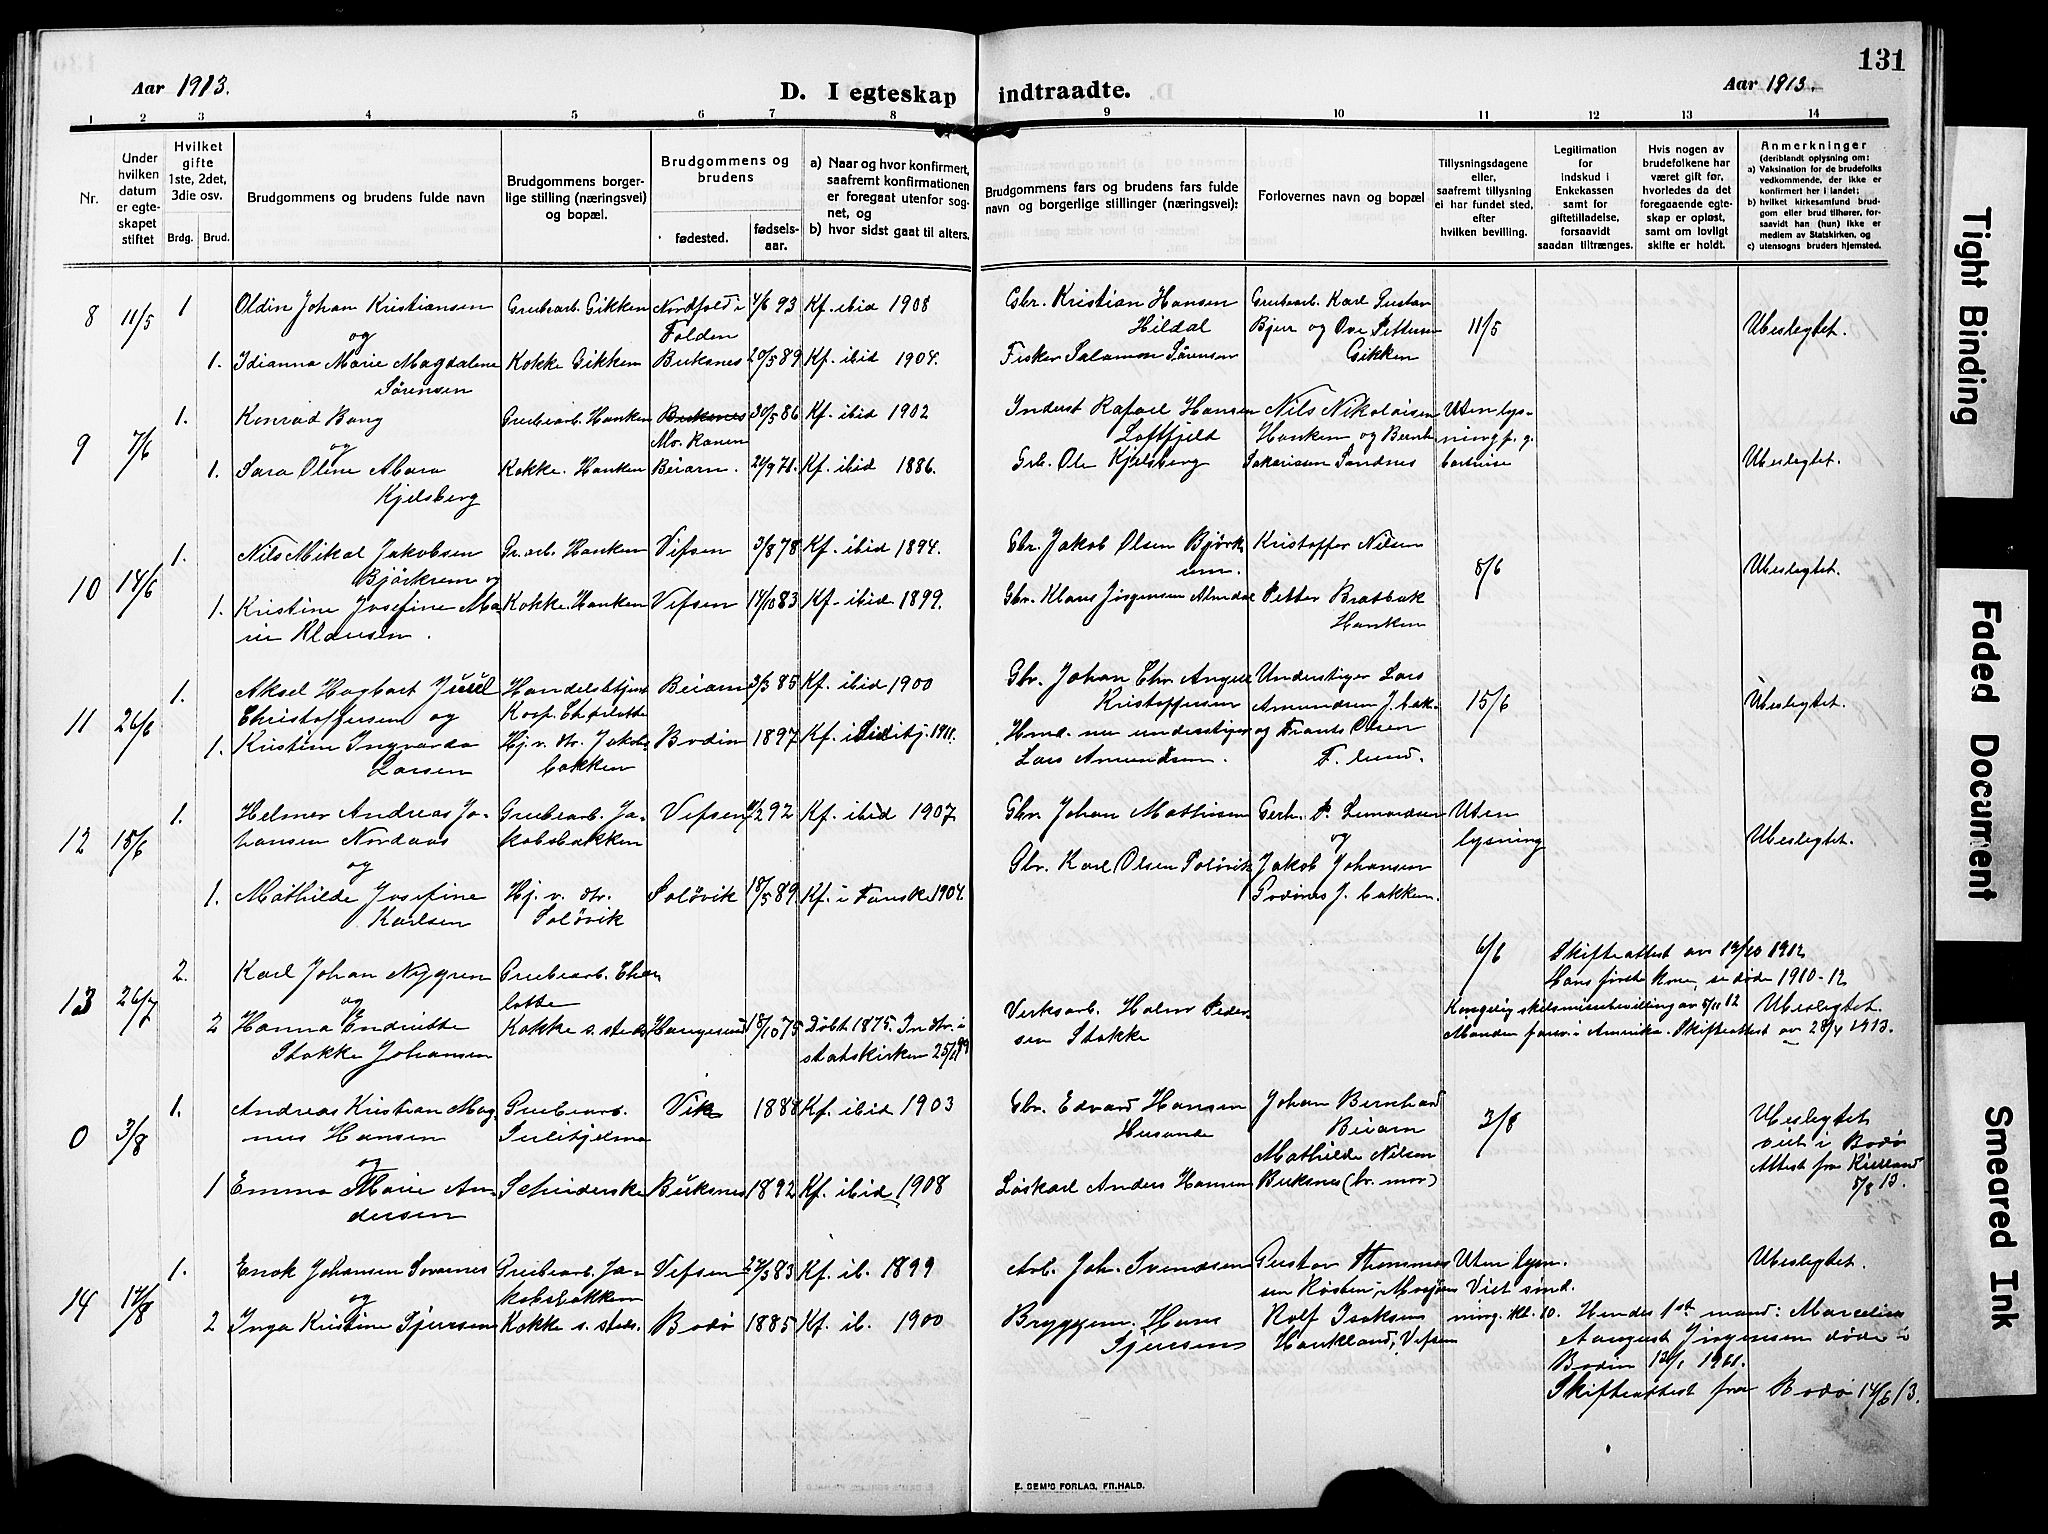 131
Aar 1913.
D. I egteskap indtraadte.
Aar 1913.
1 2 3 4 5 6 7 8 9 10 11 12 13 14
Nr.
Under hvilken datum er egteskapet stiftet
Hvilket gifte 1ste, 2det, 3die osv.
Brdg. Brud.
Brudgommens og brudens fulde navn
Brudgommens borgerlige stilling (næringsvei) og bopæl.
Brudgommens og brudens
fødested.
fødselsaar.
a) Naar og hvor konfirmert, saafremt konfirmationen er foregaat utenfor sognet, og
b) hvor sidst gaat til alters.
Brudgommens fars og brudens fars fulde navn og borgerlige stillinger (næringsvei):
Forlovernes navn og bopæl
Tillysningsdagene eller, saafremt tillysning ei har fundet sted, efter hvilken bevilling.
Legitimation for indskud i Enkekassen samt for giftetilladelse, forsaavidt saadan tiltrænges.
Hvis nogen av brudefolkene har været gift før, hvorledes da det foregaaende egteskap er opløst, samt om lovligt skifte er holdt.
Anmerkninger
(deriblandt oplysning om:
a) Vaksination for de brudefolks vedkommende, der ikke er konfirmert her i landet;
b) hvilket kirkesamfund brudgom eller brud tilhører, forsaavidt han (hun) ikke er medlem av Statskirken, og
c) utensogns bruders hjemsted.
8 11/5 1 Oldin Johan Kristiansen Grubearb. Gikken Nordfold i Folden 4/6 93 Kf. ibid 1908 Gbr. Kristian Hansen Hildal Grubearb. Karl Gustav Bjur og Ove Pettersen Gikken 11/5 Ubeslegtet.
og
1. Idianna Marie Magdalene Sørensen Kokke Gikken Buksnes 20/5 89 Kf. ibid 1904. Fisker Salamon Sørensen
9 7/6 1. Konrad Bang Grubearb. Hanken Buksnes Mo. Ranen 30/5 86 Kf. ibid 1902 Inderst Rafael Hansen Loftfjeld Nils Nikolaisen Hanken og Bernh. Sakariasen Sandnes Uten lysning p. g. Ubeslegtet.
og
1. Sara Oline Mara Kjelsberg Kokke. Hanken Beiarn. 20/9 71. Kf. ibid 1886. Grb. Ole Kjelsberg
10 14/6 1. Nils Mikal Jakobsen Bjørkrem og Gr. arb. Hanken Vifsen 3/8 78 Kf. ibid 1894. Gbr. Jakob Olsen Bjørkrem. Kristoffer Nilsen 8/6 Ubeslegtet.
1. Kristine Josefine Marie Klausen. Kokke. Hanken Vefsen 14/10 83 Kf. ibid 1899. Gbr. Klaus Jørgensen Almdal Petter Bratbak Hanken
11 26/6 1. Aksel Hagbart Juul Christoffersen og Handelsbetjent Koop. Charlotte Beiarn 3/3 85 Kf. ibid 1900 Gbr. Johan Chr. Angell Kristoffersen Understiger Lars Amundsen J. bakken og Frants Olsen F. lund. 15/6 Ubeslegtet.
1. Kristine Ingvarda Larsen Hj. v. dr. Jakobsbakken Bodin 1897 Kf. i Sulitj. 1911. Hmd. nu understiger Lars Amundsen.
12 15/6 1. Helmer Andreas Johansen Nordaas Grubearb. Jakobsbakken Vefsen 11/2 92 Kf. ibid 1907 Gbr. Johan Mathisen Gerh. P. Lennardsen og Jakob Johansen Godønes J. bakken. Uten lysning Ubeslegtet.
og
1. Mathilde Josefine Karlsen Hj. v. dr. Soløvik Soløvik 18/5 89 Kf. i Fauske 1904. Gbr. Karl Olsen Soløvik
13 26/7 2. Karl Johan Nygren Grubearb. Charlotte 6/6 Skifteattest av 12/10 1912
Hans første kone, se døde 1910-12
og
2 Hanna Endrikke Stokke Johansen Kokke s. steds Haugesund 18/10 75 Døbt 1875. Indtr. i statskirken 25/11 99 Verksarb. Halvor Pedersen Stokke Kongelig skilsmissebevilling av 5/11 12 Ubeslegtet.
Manden forsv. i Amerika. Skifteattest av 28/4 1913.
0 3/8 1. Andreas Kristian Magnus Hansen Grubearb. Sulitjelma Vik 1888 Kf. ibid 1903 Gbr. Edvard Hansen Husande Johan Bernhard Beiarn 3/8 Ubeslegtet viet i Bodø Attest fra Kielland 5/8 13.
og
1 Emma Marie Andersen Skriderske Buksnes 1892 Kf. ibid 1908 Løskarl Anders Hansen Mathilde Nilsen Buksnes (br. mor)
14 17/8 1. Enok Johansen Sovarnes Grubearb. Jakobsbakken Vefsen 24/3 83 Kf. ib. 1899 Arb. Joh. Svendsen Gustav Thommesen Røsten, Mosjøen Uten lysn. Viet sønd. Ubeslegtet.
og
2 Inga Kristine Sjursen Kokke s. steds. Bodø 1885 Kf. ib. 1900 Bryggem. Hans Sjursen Rolf Isaksen Haukland, Vefsen ning. kl. 10. Hendes 1ste mand: Marcelius August Jørgensen døde i Bodin 1911.
Skifteattest fra Bodø 14/6 13.
E. SEM'S FORLAG, FR.HALD.
Tight Binding
Faded Document
Smeared Ink